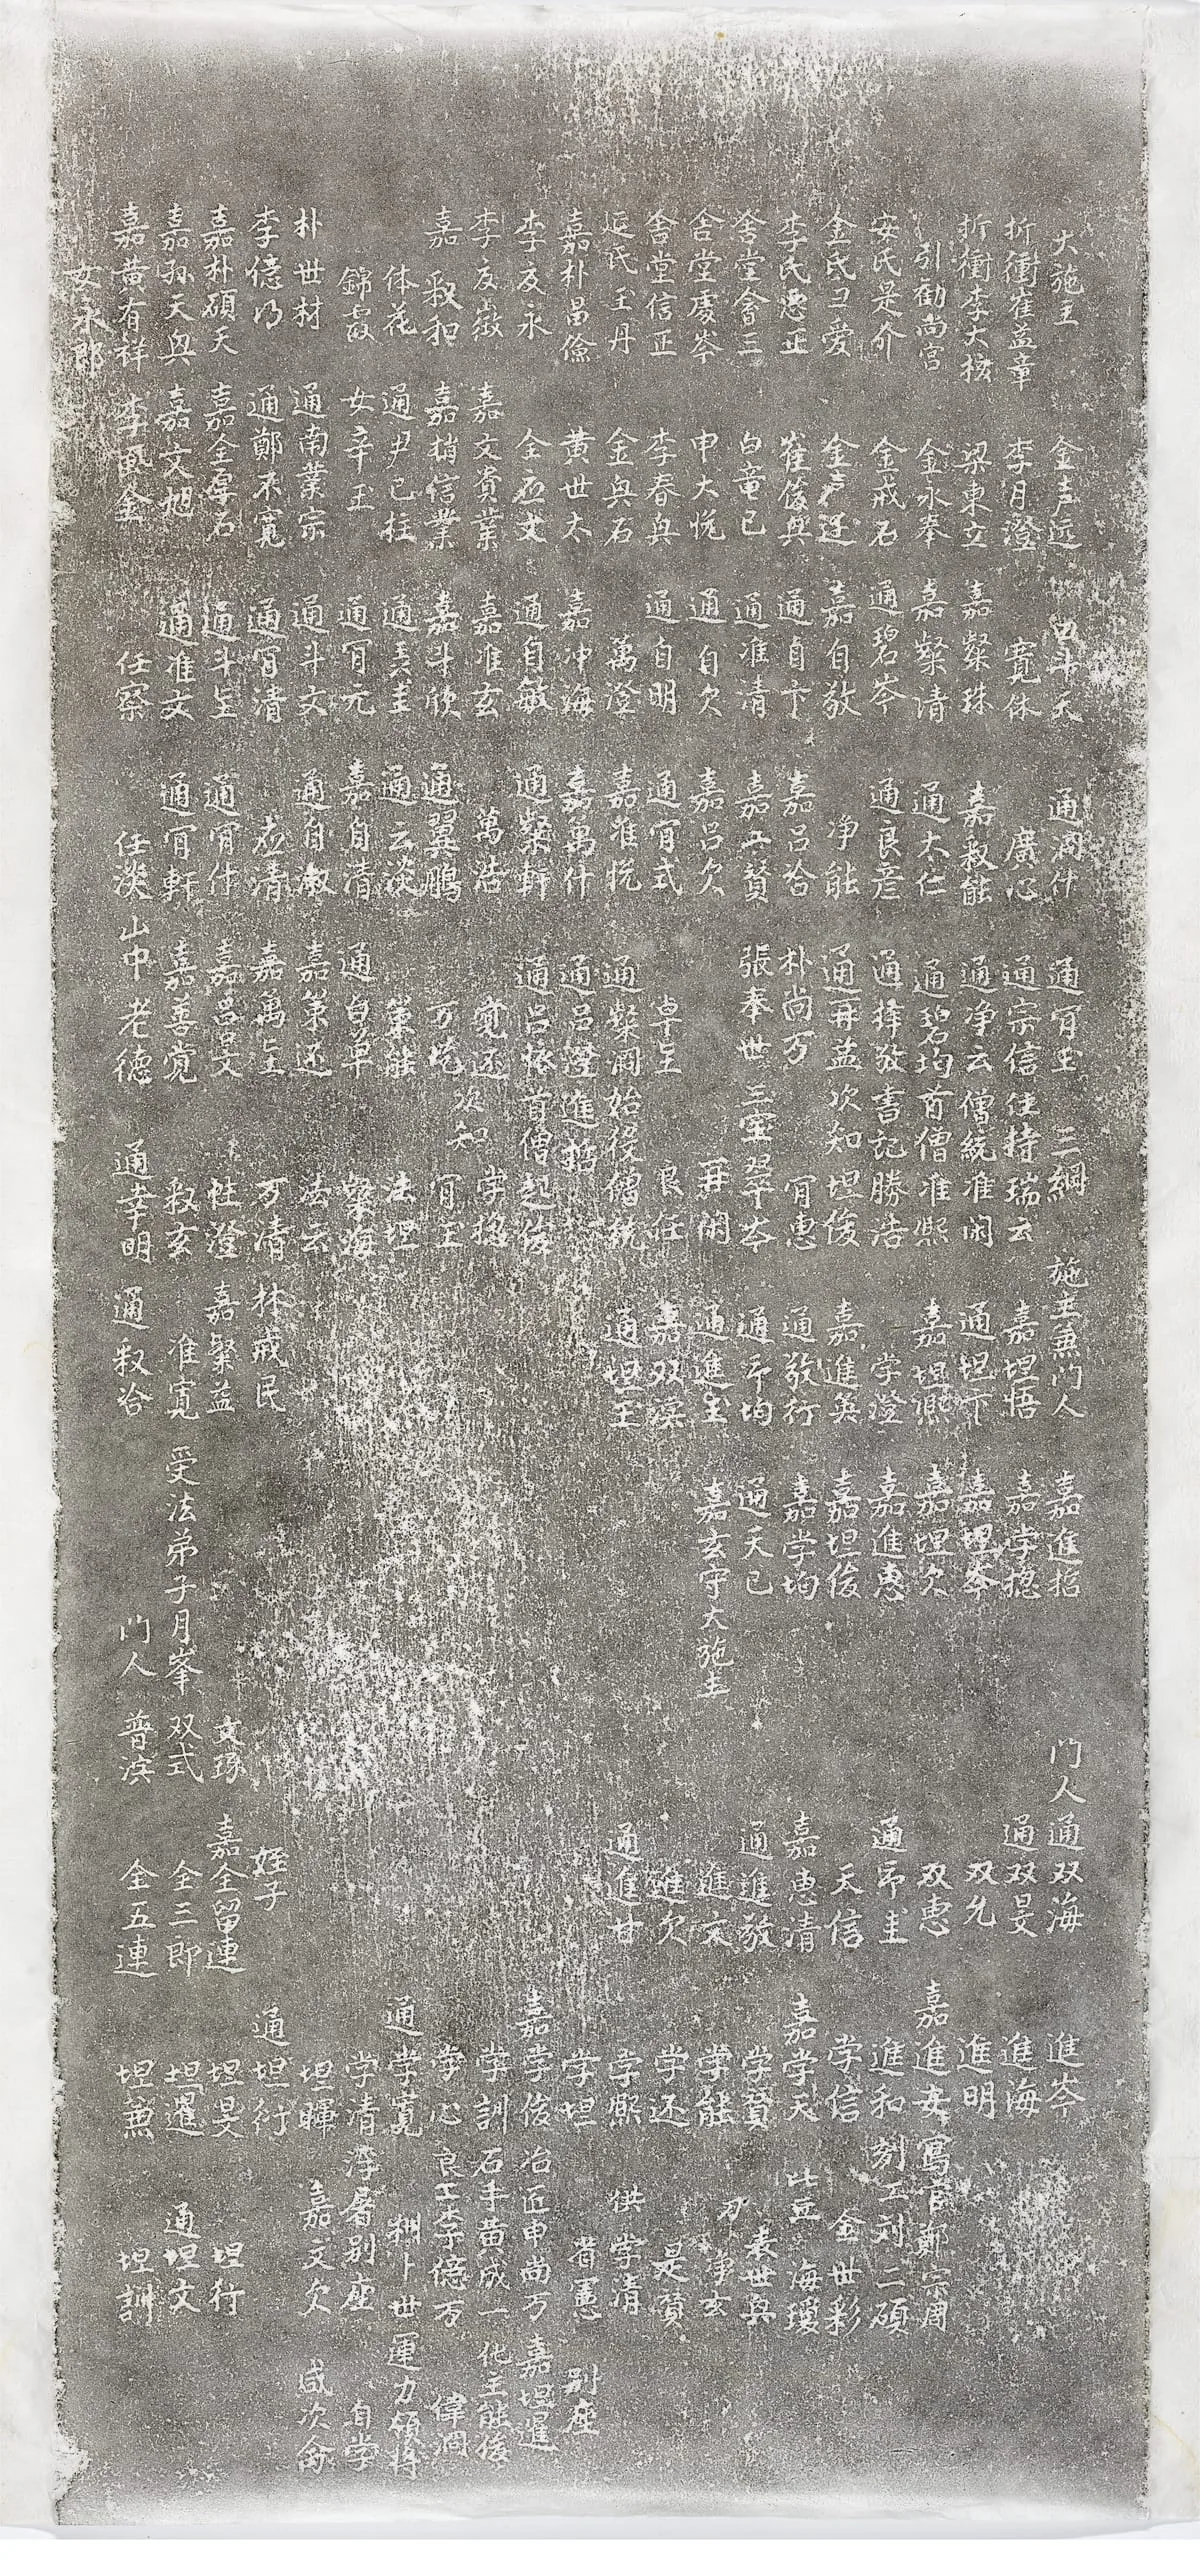 大施主 金声远 田斗天 通浻什 通肎玉 三綱 施主兼门人 嘉進招 门人 通双海 進岑
折衝崔益章 李月澄 寛休 廣心 通宗信 住持瑞云 嘉坦悟 嘉学摠 通双旻 進海
折衝李大核 梁東立 嘉粲珠 嘉敉能 通净云 僧統准闲 通坦卞 嘉坦岑 双允 進明
引勧尚宫 金永奉 嘉粲清 通大仁 通碧均 首僧准熙 嘉坦熈 嘉坦次 双恵 嘉進安 寫官鄭宗周
安氏是介 金戒石 通碧岑 通良彦 通择敬 書記勝浩 学澄 嘉進恵 通帀圭 進和 刻工刘二碩
金氏彐爱 金戸廷 嘉自敬 净能 通再益 次知坦俊 嘉進英 嘉坦俊 天信 学信 金世彩
李氏惪正 崔俊興 通自卞 嘉吕哈 朴尚万 肎惠 通敬行 嘉学均 嘉恵清 嘉学天 比丘海瓊
舍堂會三 白竜已 通准清 嘉工贊 張奉世 三宝翠岑 通帀均 通天已 通進敬 学賛 素世與
舍堂處岑 申大悦 通自欠 嘉吕欠 再闲 通進玉 嘉玄守大施主 進文 学能 净玄
舍堂信正 李春與 通自明 通肎式 卓旵 良任 嘉双湙 進欠 学还 是賛
延氏玉丹 金與石 萬澄 嘉准悦 通粲浻 始役僧統 通坦玉 通進甘 学熈 供学清
嘉朴昌儉 黄世太 嘉冲海 嘉萬什 通吕澄 進招 学坦 省憲 别座
李友永 全应文 通自敏 通粲軒 通吕侬 首僧起俊 嘉学俊 冶匠申尚万 嘉坦暹
李友嶶 嘉文賚業 嘉准玄 萬浩 覚还 次知 学摠 学訓 石手黄成一 化主能俊
嘉 敉和 嘉梢信業 嘉斗欣 通翼鵬 万挩 肎玉 学心 良工李億万 偉浻
体花 通尹已柱 通天圭 通云淡 策能 法坦 通学寛 糊卜世 運力領将
錦霞 女辛玉 通肎元 嘉自清 通自卓 粲海 学清 浮屠别座 自学
朴世材 通南業宗 通斗文 通自淑 嘉策还 法云 坦暉 嘉文欠 咸次侖
李億乃 通鄭不寛 通肎清 应清 嘉萬旵 万清 林戒民 姪子 通坦衍
嘉朴碩天 嘉全厚石 通斗旵 通肎什 嘉吕文 性澄 嘉粲益 文琢 嘉全留連 坦旻 坦行
嘉孙天與 嘉文旭 通准文 通肎軒 嘉善覚 敉玄 准寛 受法弟子月峯 双式 全三郎 坦暹 通坦文
嘉黄有祥 李風金 任察 任淡 山中老德 通幸明 通敉哈 门人 普浜 全五連 坦兼 坦訓
女永郎